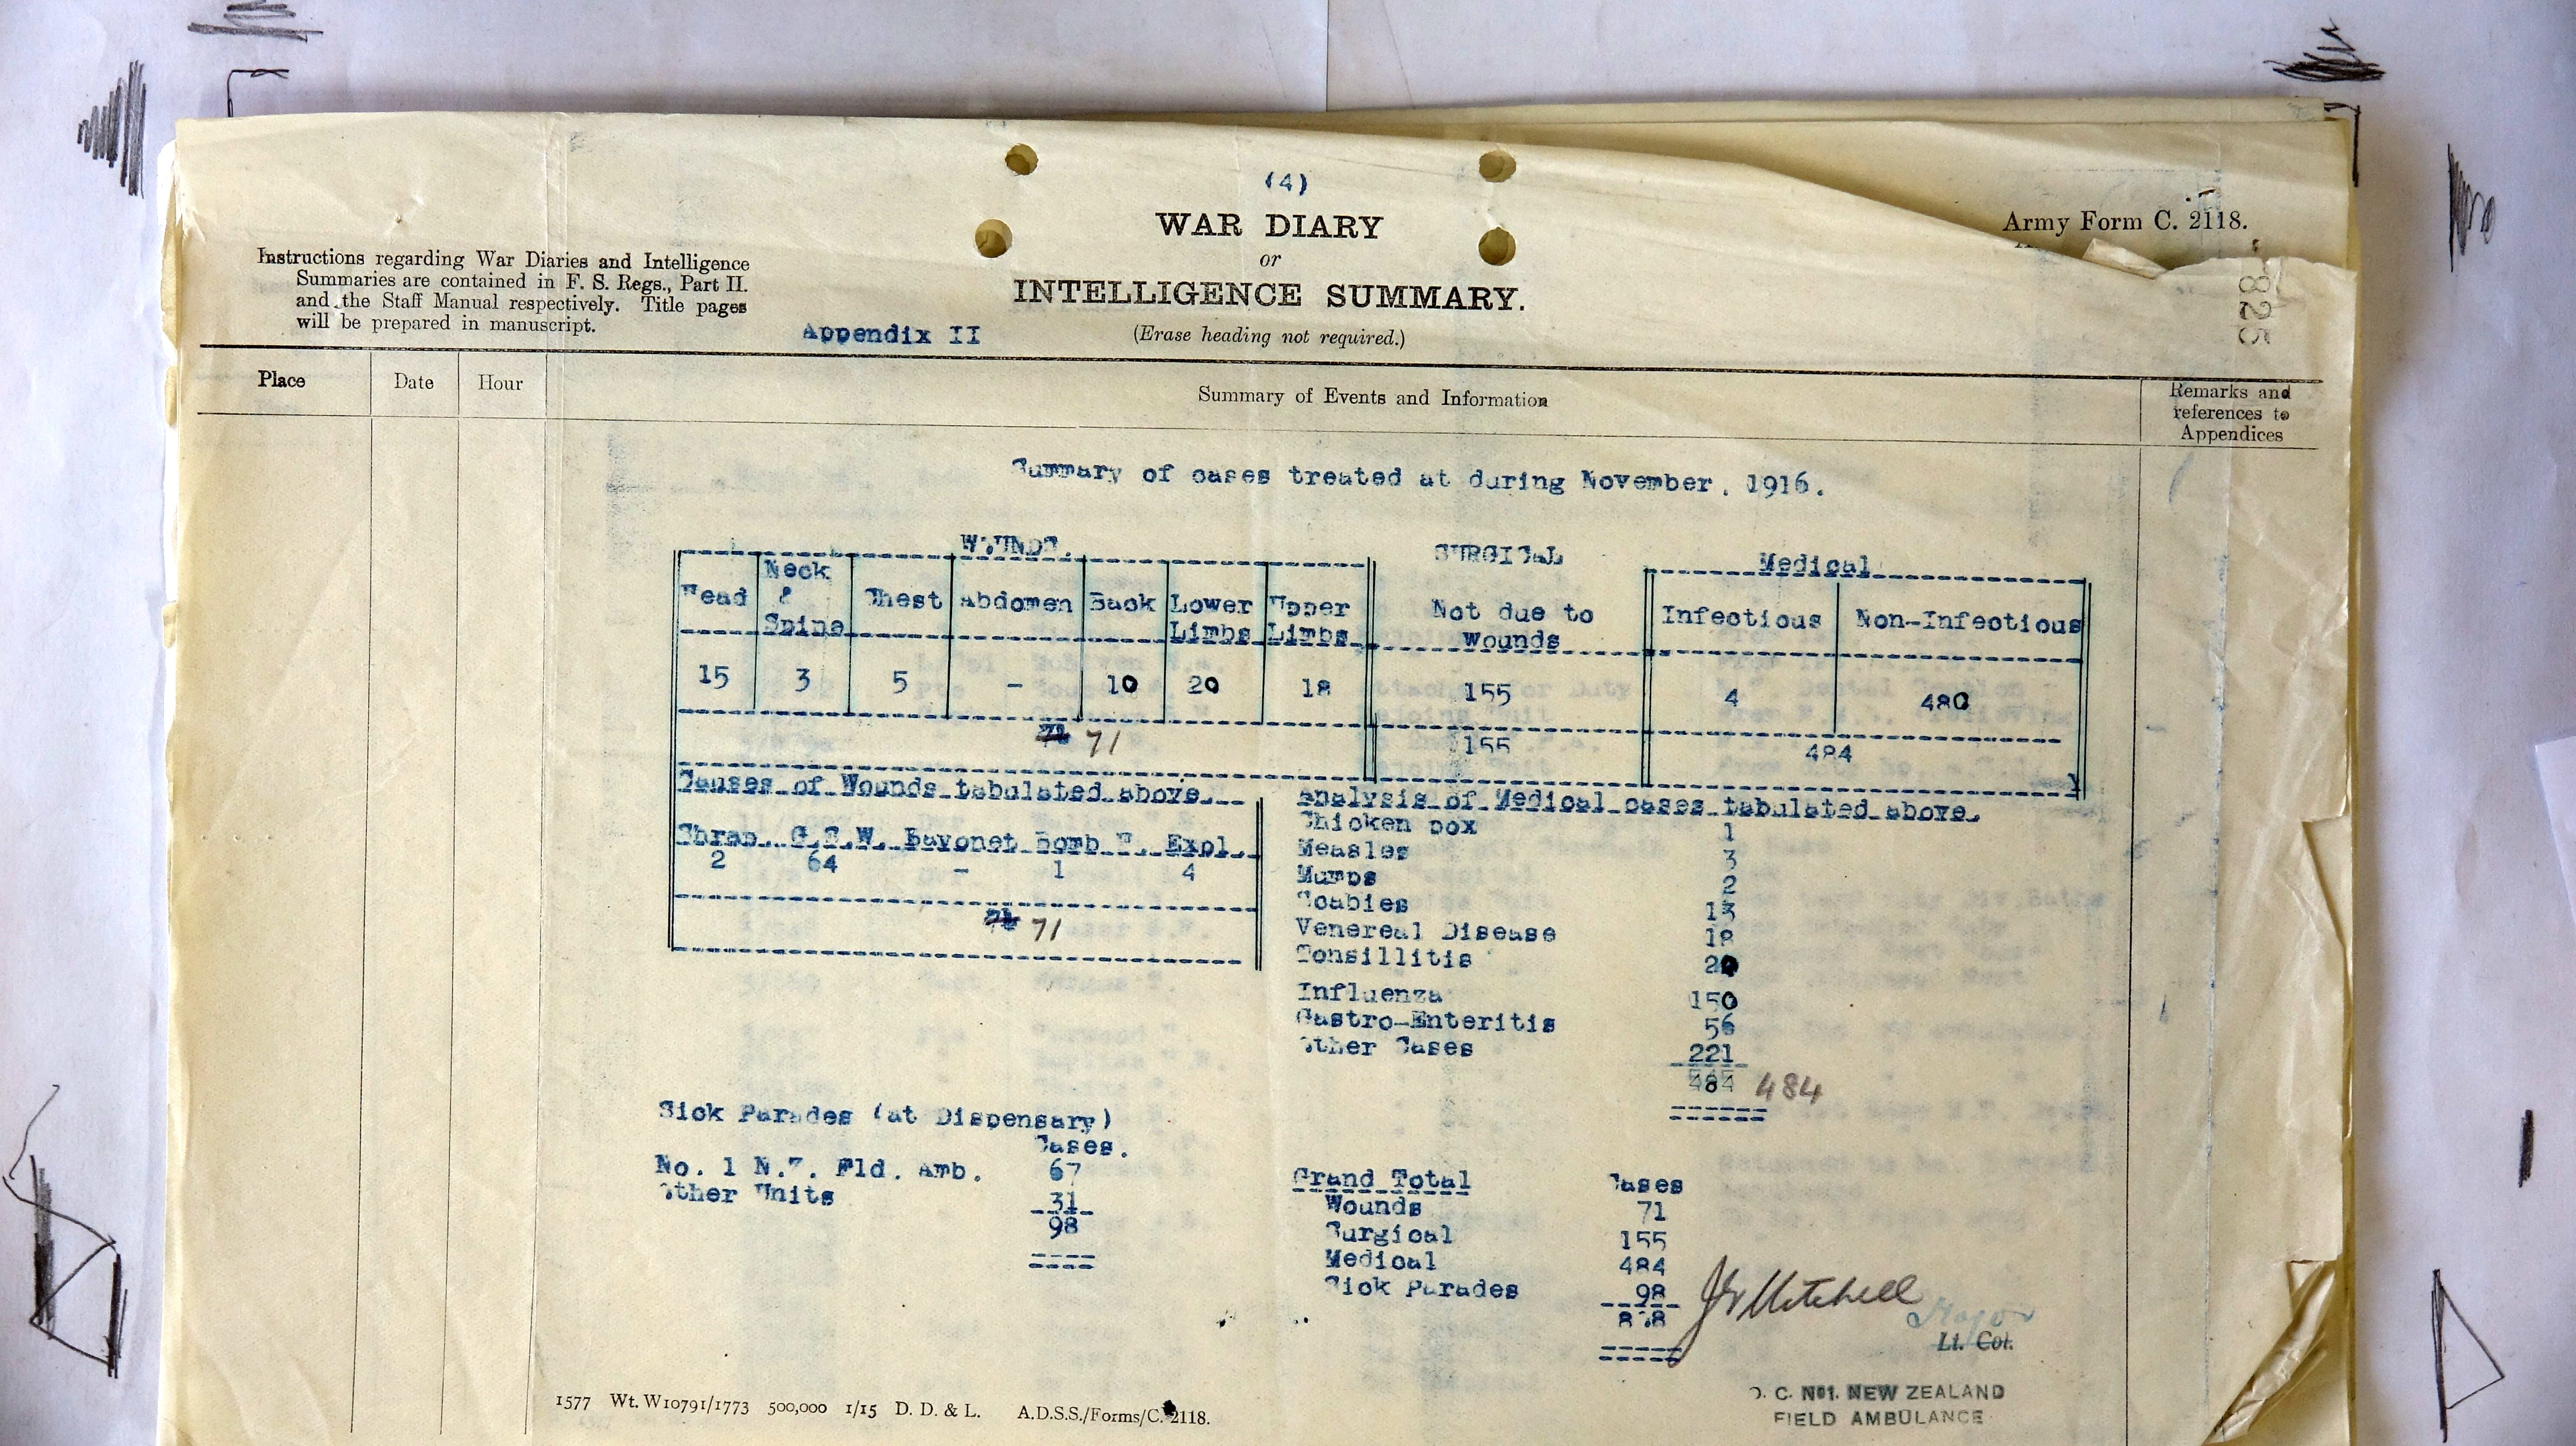 (4)
WAR DIARY
or
INTELLIGENCE SUMMARY.
(Erase heading not required.)
Army Form C. 2118.
825
Instructions regarding War Diaries and Intelligence
Summaries are contained in F. S. Regs., Part II.
and the Staff Manual respectively. Title pages
will be prepared in manuscript.
Appendix II
Place Date Hour Summary of Events and Information Remarks and
references to
Appendices
Summary of cases treated at during November, 1916.
WOUNDS. SURGICAL Medical
Head Neck & Spine Chest Abdomen Back Lower Limbs Upper Limbs Not due to wounds Infectious Non-Infectious
15 3 5 - 10 20 18 155 4 480
71 155 484
Causes of Wounds tabulated above.
Shrap. G.S.W. Bayonet Bomb H. Expl.
2 64 - 1 4
71
Analysis of Medical cases tabulated above.
Chicken pox 1
Measles 3
Mumps 2
Scabies 13
Venereal Disease 18
Tonsillitis 20
Influenza 150
Gastro-Enteritis 56
Other Cases 221
484 484
Sick Parades (at Dispensary)
Cases.
No. 1 N.Z. Fld. Amb. 67
Other Units 31
98
Grand Total Cases
Wounds 71
Surgical 155
Medical 484
Sick Parades 98
Mitchell
Major
Lt. Col.
O. C. No1. NEW ZEALAND
FIELD AMBULANCE
1577 Wt. W10791/1773 500,000 1/15 D. D. & L. A.D.S.S./Forms/C. 2118.